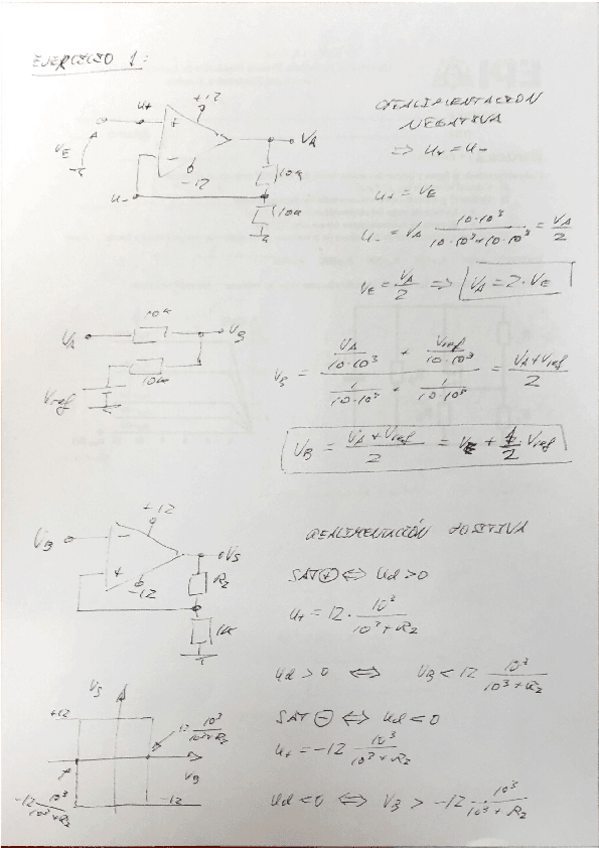 EJERCICIO 1:
+12
U+
+
VE
-
-12
VA
10k
U-
10k
REALIMENTACION
NEGATIVA
⇒ U+ = U-
U+ = VE
U- = VA 10·10³ / (10·10³+10·10³) = VA/2
VE = VA/2 ⇒ VA = 2·VE
10k
VA
VB
10k
Vref
VB = (VA/10·10³ + Vref/10·10³) / (1/10·10³ + 1/10·10³) = (VA+Vref)/2
VB = (VA+Vref)/2 = VE + 1/2·Vref
+12
VB
-
+
-12
VS
R2
1k
REALIMENTACIÓN POSITIVA
SAT⊕ ⇔ Ud>0
U+ = 12· 10³/(10³+R2)
Ud>0 ⇔ VB < 12 10³/(10³+R2)
SAT⊖ ⇔ Ud<0
U+ = -12 10³/(10³+R2)
Ud<0 ⇔ VB > -12 · 10³/(10³+R2)
VS
+12
12 10³/(10³+R2)
VB
-12 10³/(10³+R2)
-12